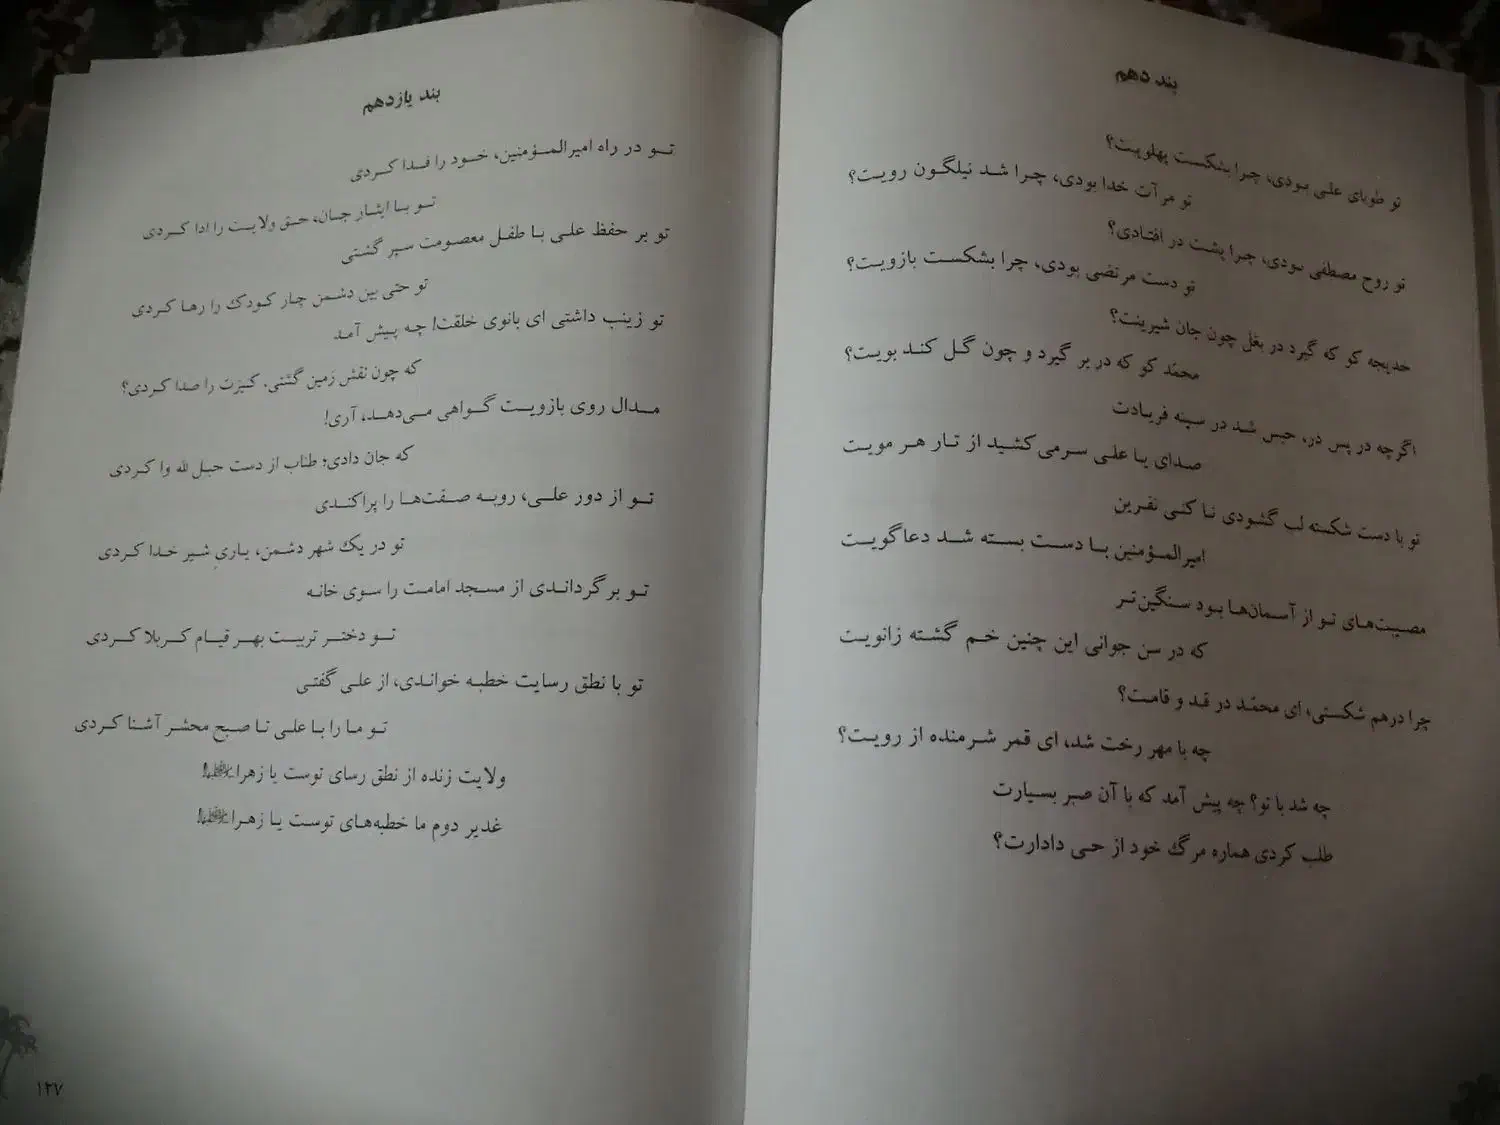 بند دهم
تو طوبای علی بودی، چرا بشکست پهلویت؟
تو مرآت خدا بودی، چرا شد نیلگون رویت؟
تو روح مصطفی بودی، چرا پشت در افتادی؟
تو دست مرتضی بودی، چرا بشکست بازویت؟
خدیجه کو که گیرد در بغل چون جان شیرینت؟
محمّد کو که در بر گیرد و چون گل کند بویت؟
اگرچه در پس در، حبس شد در سینه فریادت
صدای یا علی سر می‌کشید از تار هر مویت
تو با دست شکسته لب گشودی تا کنی نفرین
امیرالمؤمنین با دست بسته شد دعاگویت
مصیبت‌های تو از آسمان‌ها بود سنگین‌تر
که در سن جوانی این چنین خم گشته زانویت
چرا درهم شکستی؛ ای محمّد در قد و قامت؟
چه با مهر رخت شد، ای قمر شرمنده از رویت؟
چه شد با تو؟ چه پیش آمد که با آن صبر بسیارت
طلب کردی هماره مرگ خود از حی دادارت؟
بند یازدهم
تو در راه امیرالمؤمنین، خود را فدا کردی
تو با ایثار جان، حق ولایت را ادا کردی
تو بر حفظ علی با طفل معصومت سپر گشتی
تو حتی بین دشمن چار کودک را رها کردی
تو زینب داشتی ای بانوی خلقت! چه پیش آمد
که چون نقش زمین گشتی، کنیزت را صدا کردی؟
مدال روی بازویت گواهی می‌دهد، آری!
که جان دادی؛ طناب از دست حبل لله وا کردی
تو از دور علی، روبه صفت‌ها را پراکندی
تو در یک شهر دشمن، یاریِ شیر خدا کردی
تو برگرداندی از مسجد امامت را سوی خانه
تو دختر تربیت بهر قیام کربلا کردی
تو با نطق رسایت خطبه خواندی، از علی گفتی
تو ما را با علی تا صبح محشر آشنا کردی
ولایت زنده از نطق رسای توست یا زهرا!
غدیر دوم ما خطبه‌های توست یا زهرا!
۱۲۷